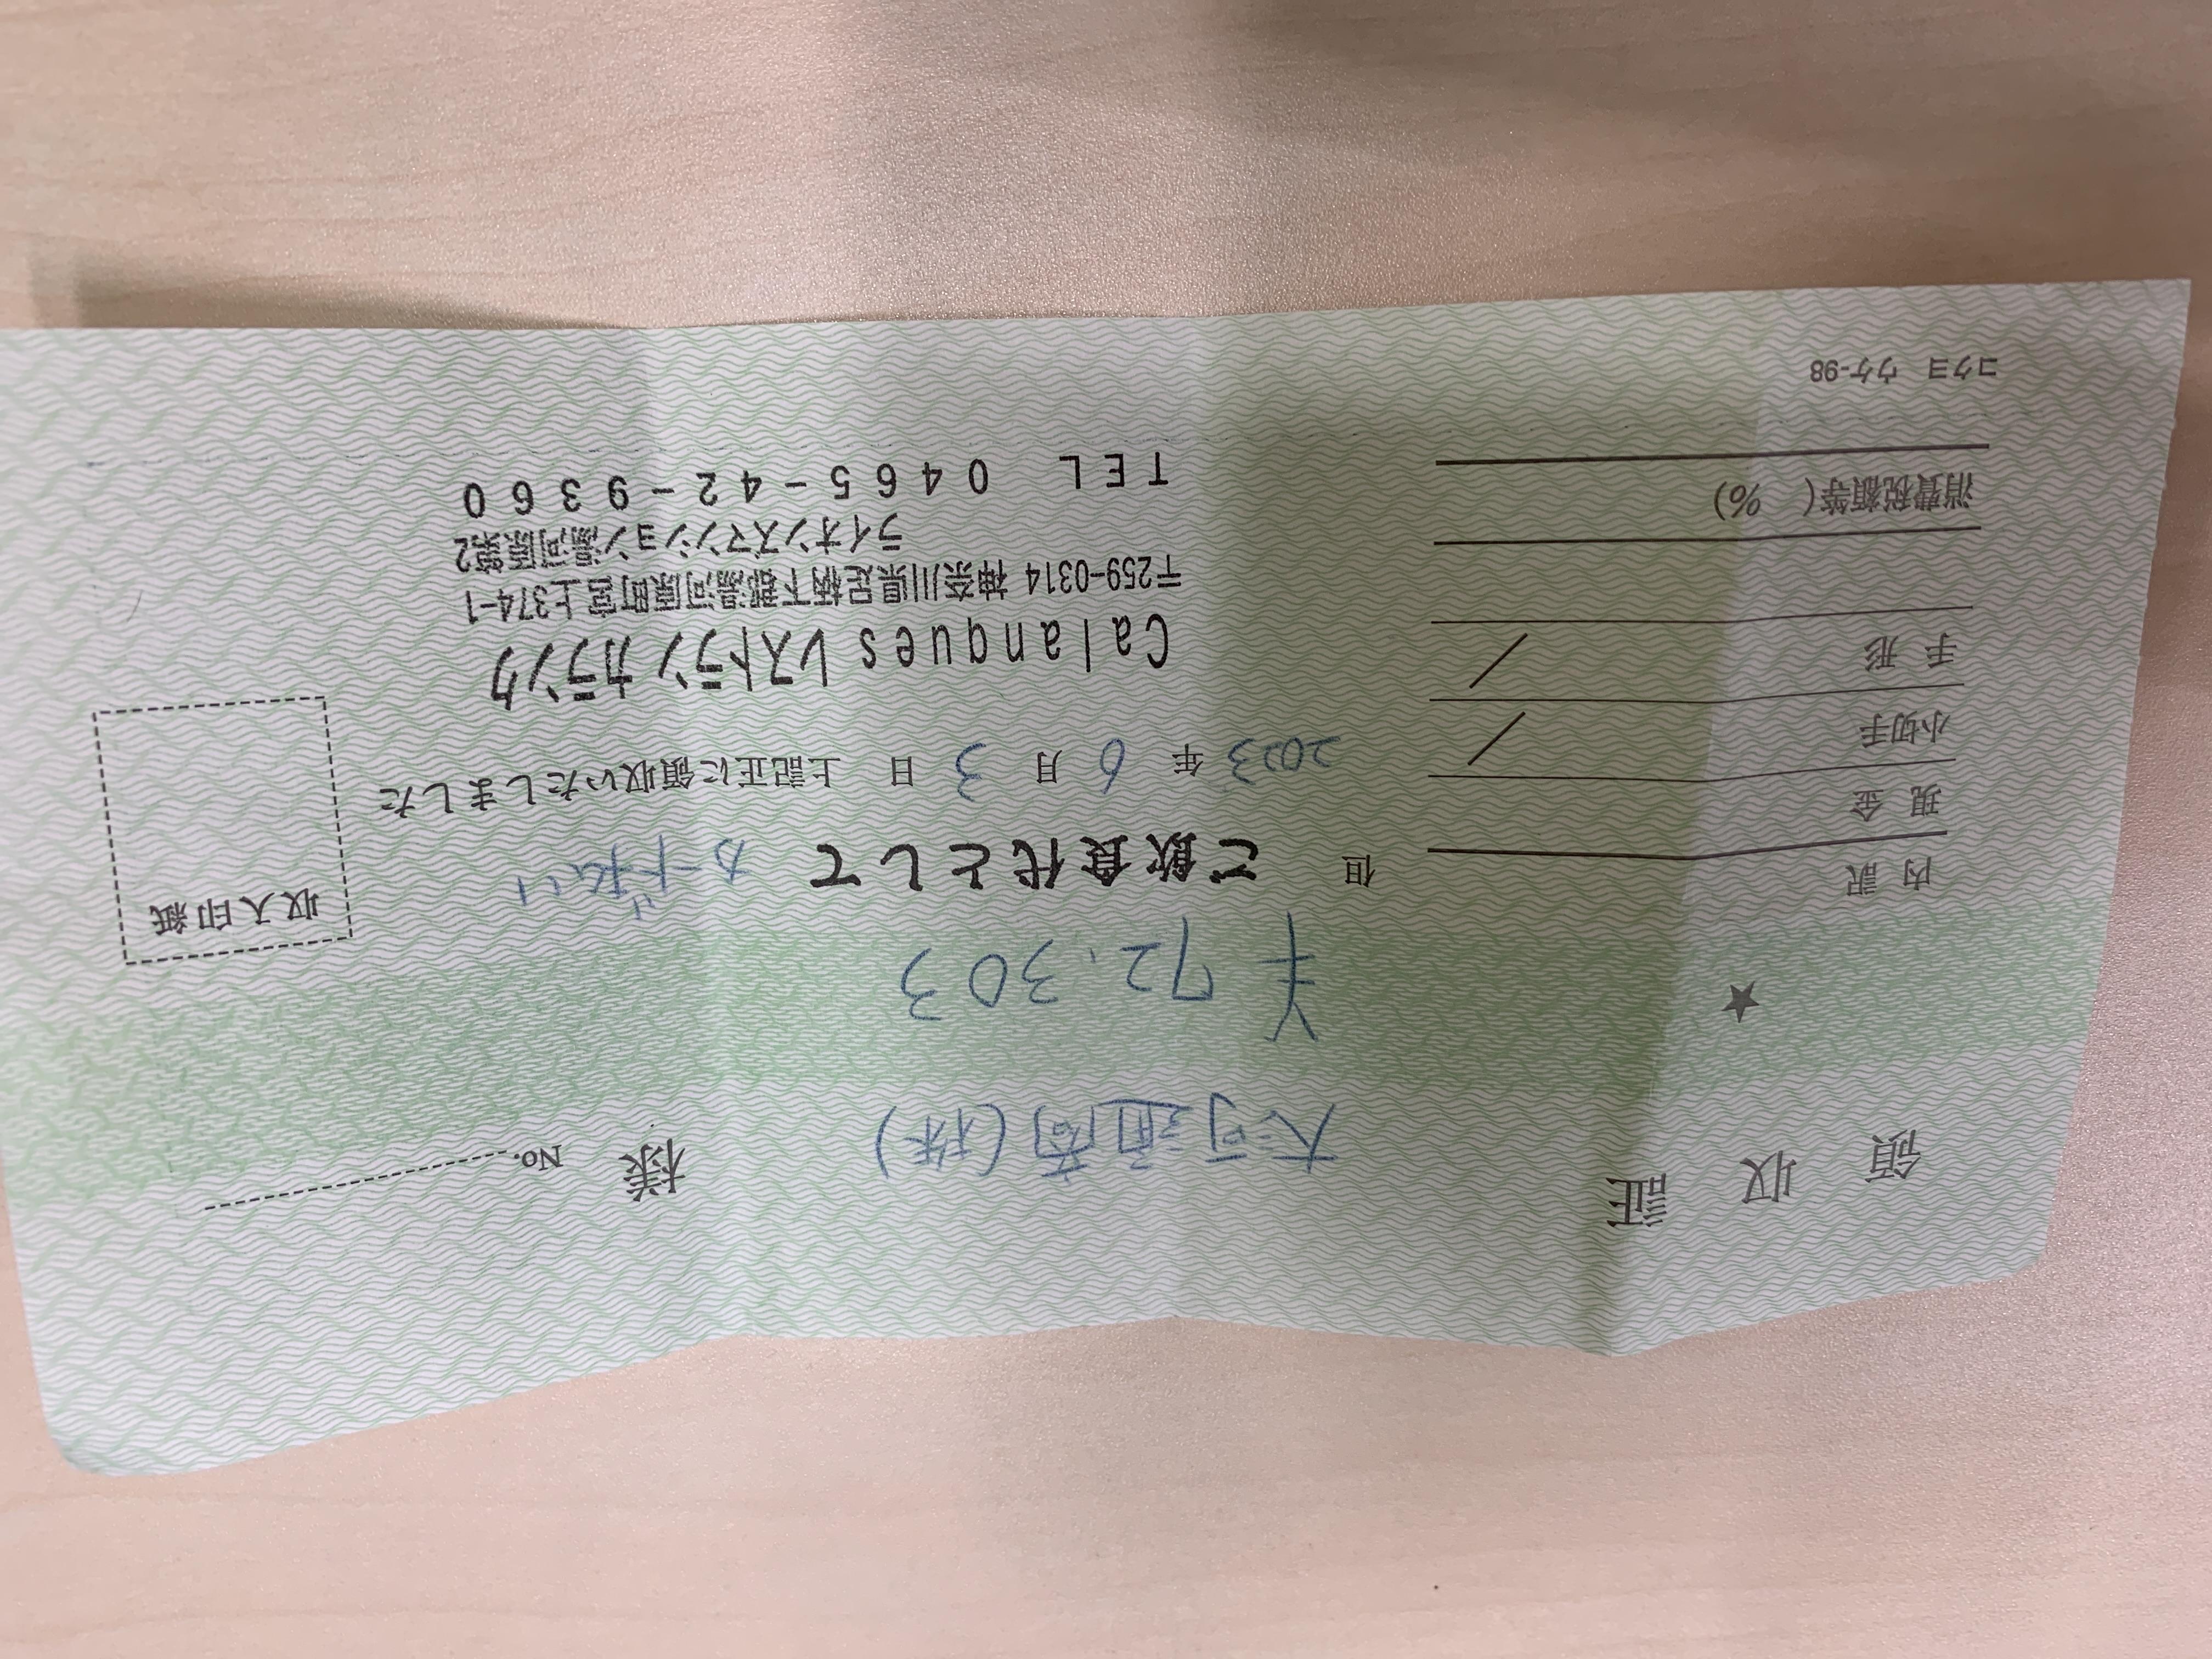 領収証
大河通商(株) 様 No.
★ ¥72,303
但 ご飲食代として カード払い
2023年6月3日 上記正に領収いたしました
内訳
現金
小切手 /
手形 /
消費税額等( %)
コクヨ ウケ-98
収入印紙
Calanques レストラン カランク
〒259-0314 神奈川県足柄下郡湯河原町宮上374-1
ライオンズマンション湯河原第2
TEL 0465-42-9360